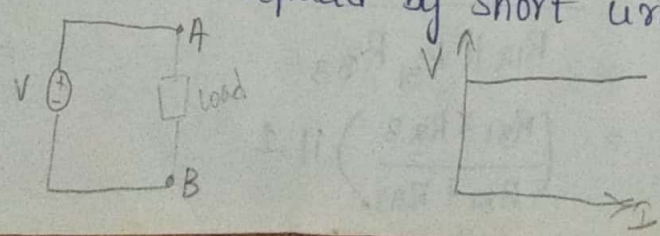 by short
A
V
+
-
load
B
V
I